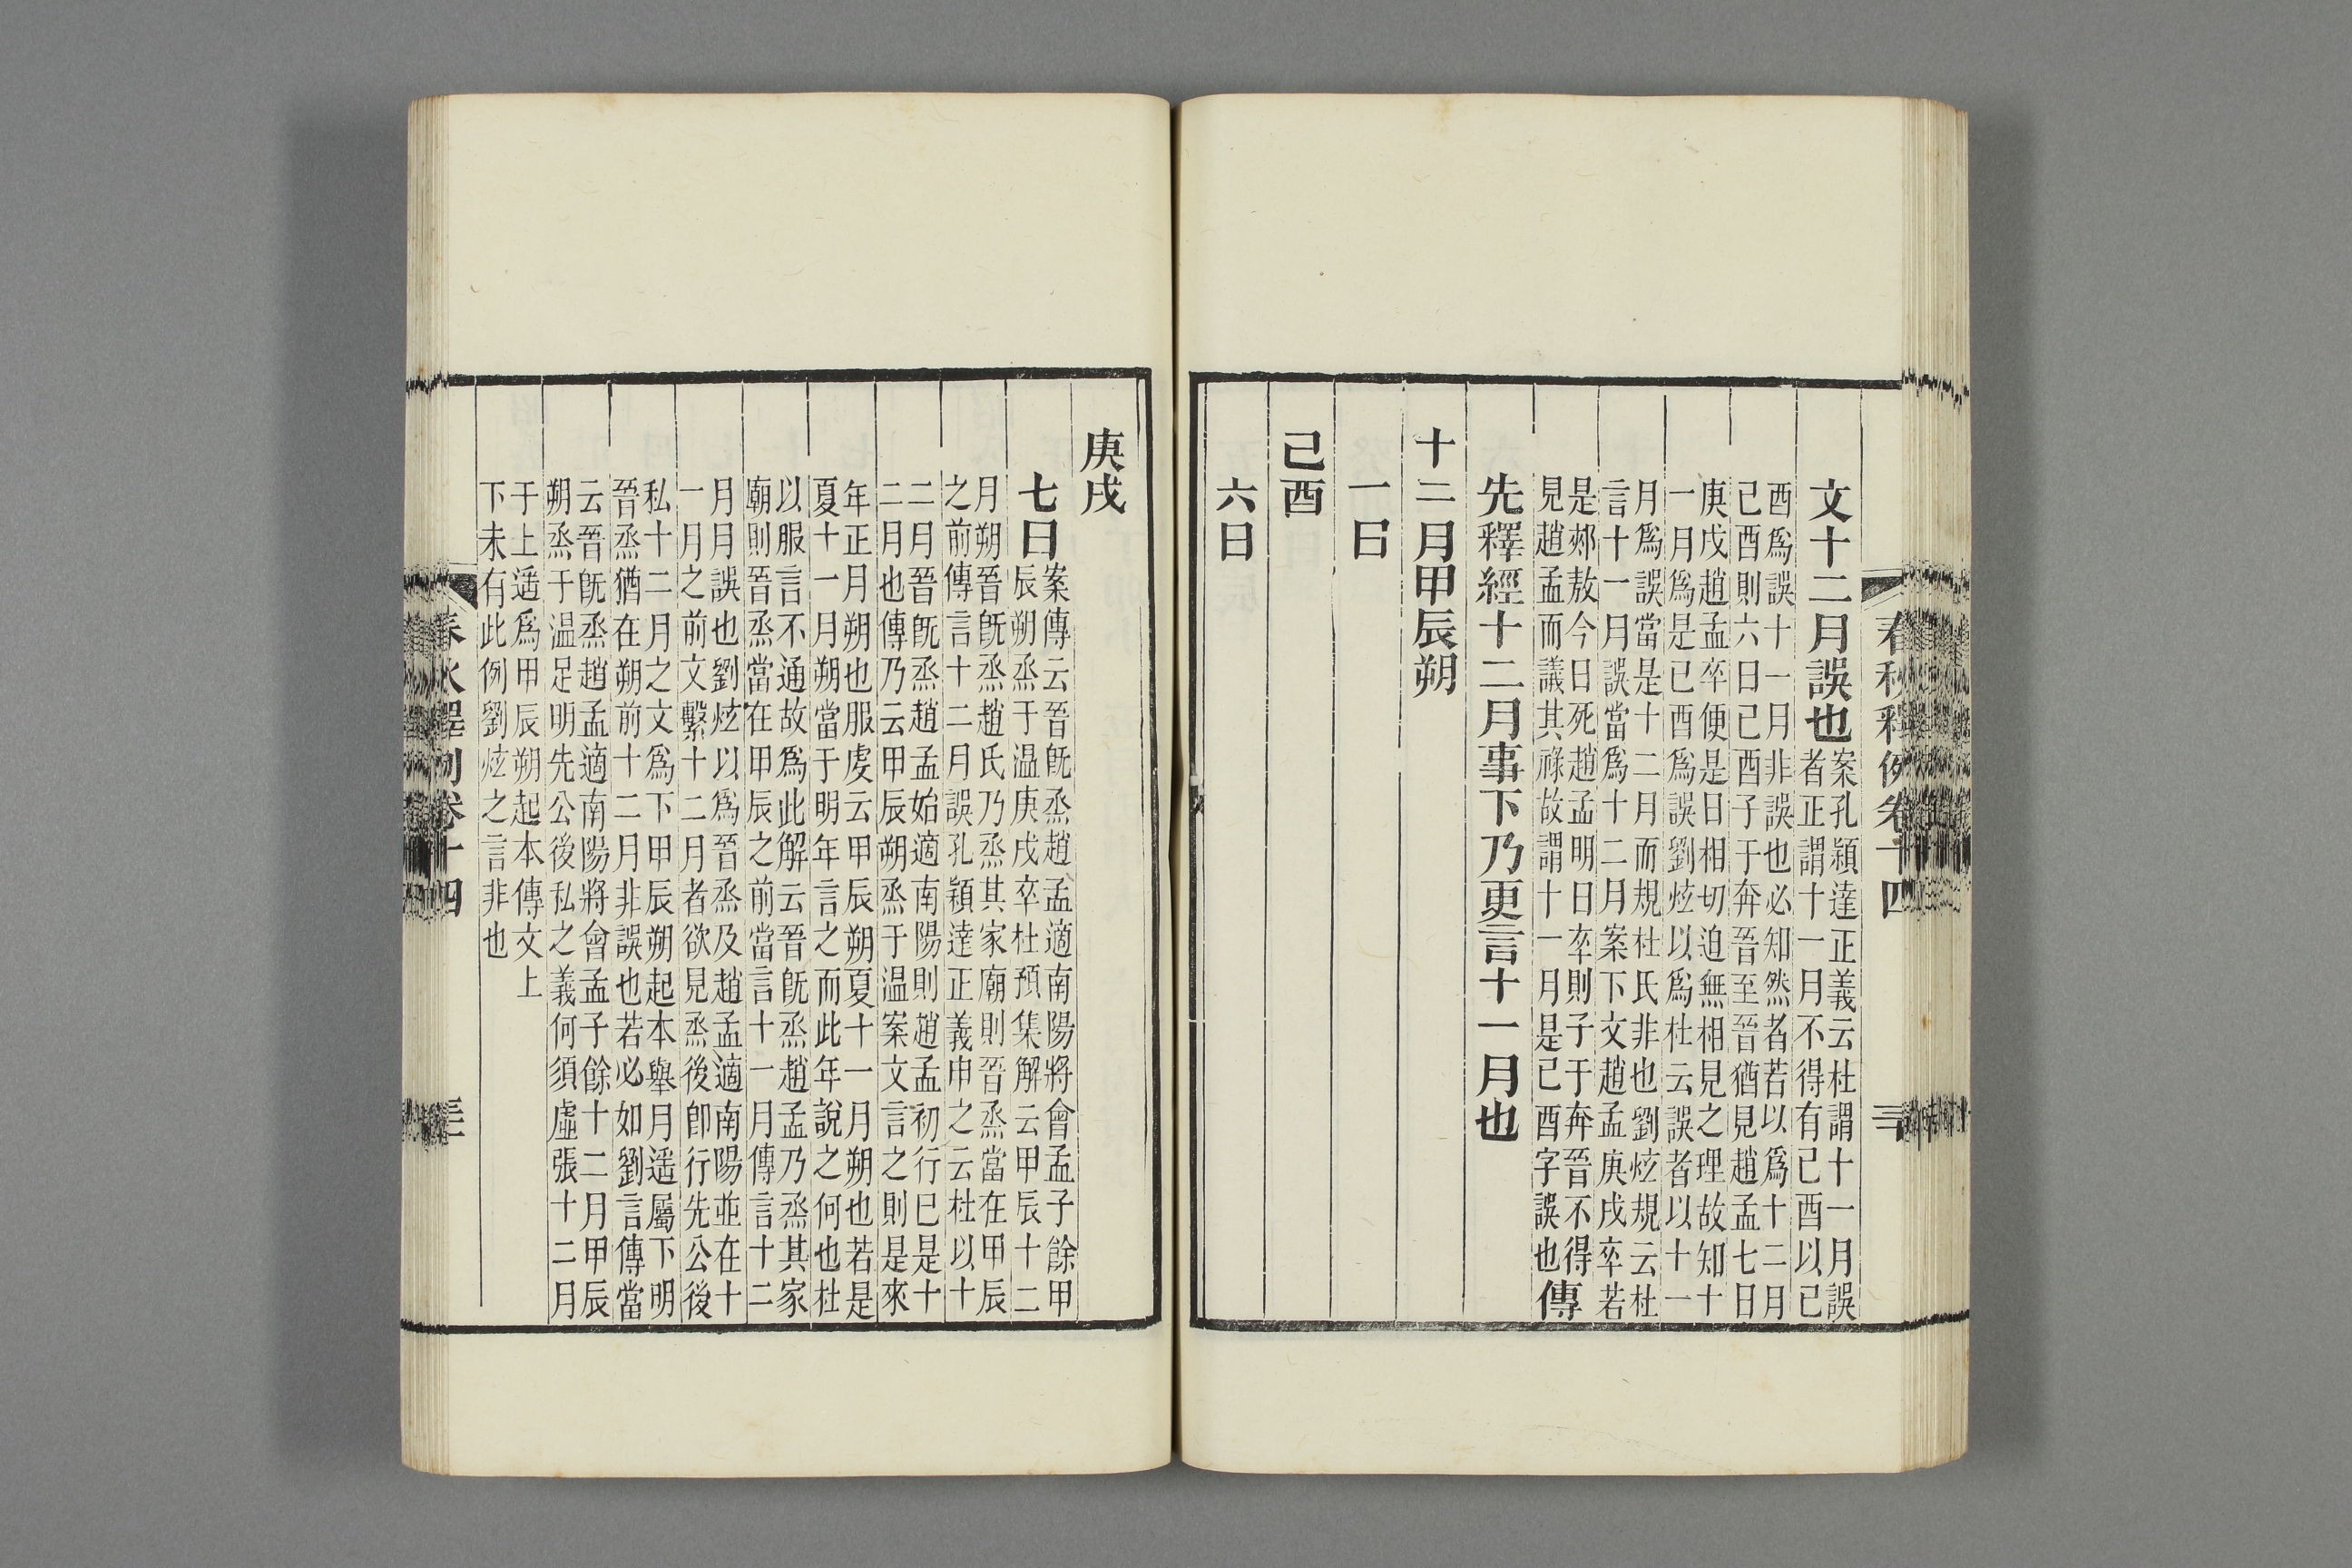 春秋釋例卷十四
文十二月誤也案孔穎達正義云杜謂十一月誤
者正謂十一月不得有己酉以己
酉爲誤十一月非誤也必知然者若以爲十二月
己酉則六日己酉子于奔晉至晉猶見趙孟七日
庚戌趙孟卒便是日相切迫無相見之理故知十
一月爲是已酉爲誤劉炫以爲杜云誤者以十一
月爲誤當是十二月而規杜氏非也劉炫規云杜
言十一月誤當爲十二月案下文趙孟庚戌卒若
是郟敖今日死趙孟明日卒則子于奔晉不得
見趙孟而議其祿故謂十一月是己酉字誤也傳
先釋經十二月事下乃更言十一月也
十二月甲辰朔
一日
己酉
六日
庚戌
七日案傳云晉旣烝趙孟適南陽將會孟子餘甲
辰朔烝于溫庚戌卒杜預集解云甲辰十二
月朔晉旣烝趙氏乃烝其家廟則晉烝當在甲辰
之前傳言十二月誤孔穎達正義申之云杜以十
二月晉旣烝趙孟始適南陽則趙孟初行已是十
二月也傳乃云甲辰朔烝于溫案文言之則是來
年正月朔也服虔云甲辰朔夏十一月朔也若是
夏十一月朔當于明年言之而此年說之何也杜
以服言不通故爲此解云晉旣烝趙孟乃烝其家
廟則晉烝當在甲辰之前當言十一月傳言十二
月月誤也劉炫以爲晉烝及趙孟適南陽並在十
一月之前文繫十二月者欲見烝後卽行先公後
私十二月之文爲下甲辰朔起本舉月遥屬下明
晉烝猶在朔前十二月非誤也若必如劉言傳當
云晉旣烝趙孟適南陽將會孟子餘十二月甲辰
朔烝于溫足明先公後私之義何須虛張十二月
于上遥爲甲辰朔起本傳文上
下未有此例劉炫之言非也
春秋釋例卷十四